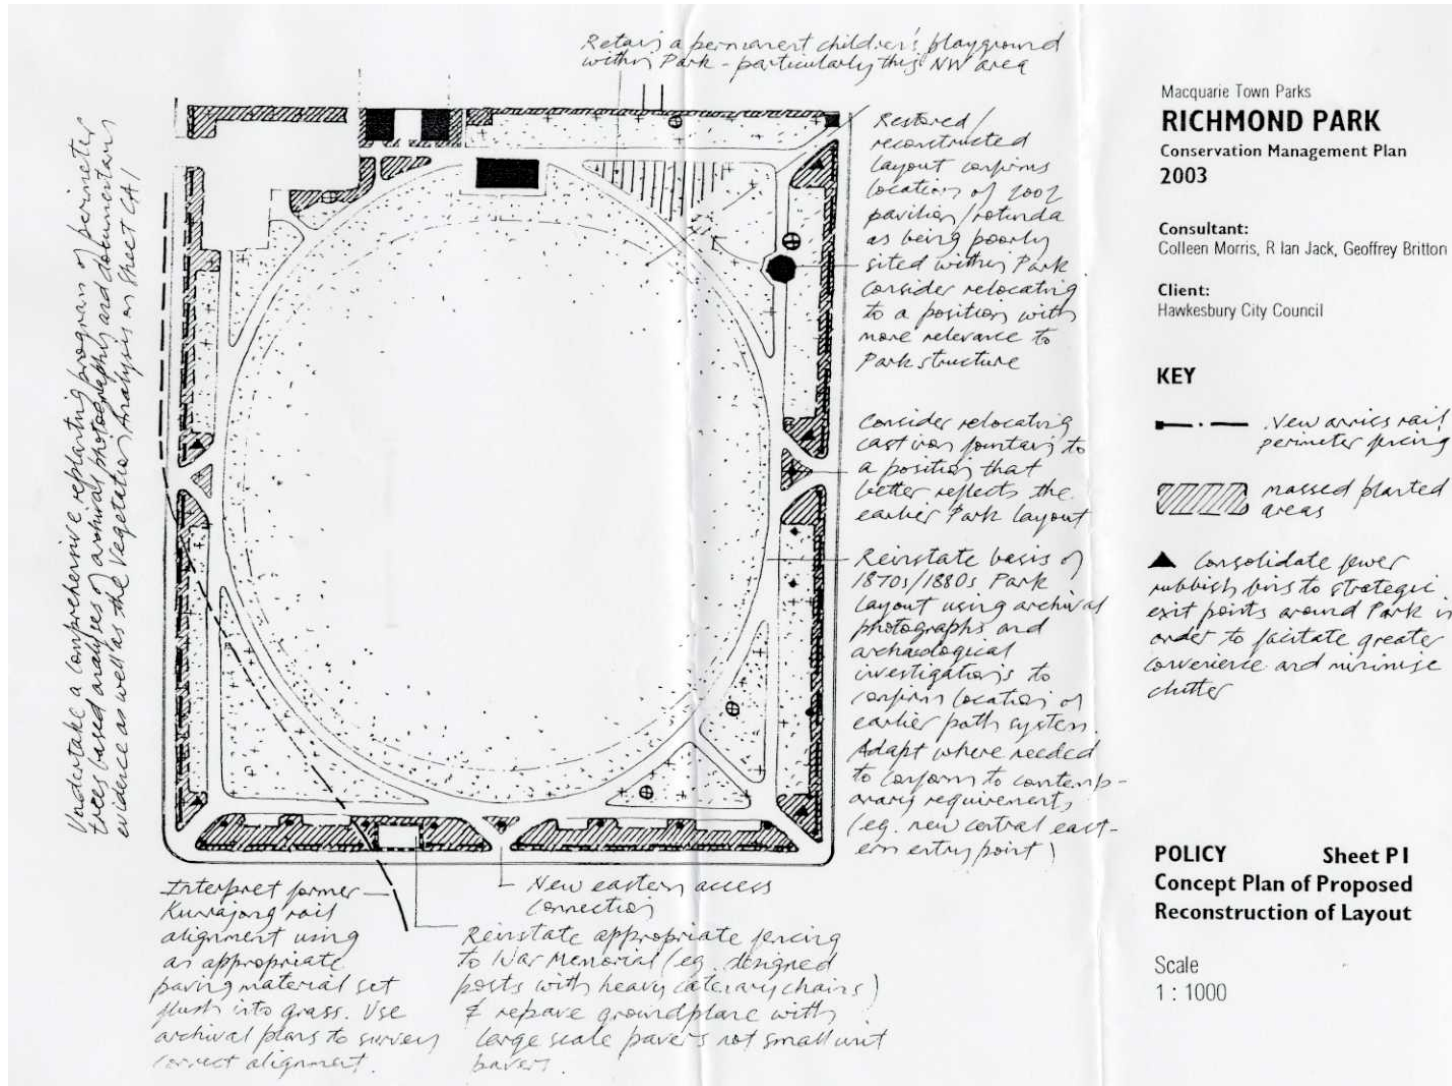 Retain a permanent children's playground
within Park - particularly this NW area
Undertake a comprehensive replanting program of perimeter
trees based analyses of archival photographs and documentary
evidence as well as the Vegetation Analysis on Sheet CA1
Restored/
reconstructed
layout confirms
location of 2002
pavilion/rotunda
as being poorly
sited within Park
consider relocating
to a position with
more relevance to
Park structure
Consider relocating
cast iron fountain to
a position that
better reflects the
earlier Park layout
Reinstate basis of
1870s/1880s Park
layout using archival
photographs and
archaeological
investigations to
confirm location of
earlier path system
Adapt where needed
to conform to contemp-
orary requirements
(eg. new central east-
ern entry point)
Interpret former
Kurrajong rail
alignment using
an appropriate
paving material set
flush into grass. Use
archival plans to survey
correct alignment.
New eastern access
connection
Reinstate appropriate fencing
to War Memorial (eg. designed
posts with heavy catenary chains)
& repave groundplane with
large scale pavers not small unit
pavers.
Macquarie Town Parks
RICHMOND PARK
Conservation Management Plan
2003
Consultant:
Colleen Morris, R Ian Jack, Geoffrey Britton
Client:
Hawkesbury City Council
KEY
New arriss rail
perimeter fencing
massed planted
areas
Consolidate fewer
rubbish bins to strategic
exit points around Park in
order to facitate greater
convenience and minimise
clutter
POLICY Sheet P1
Concept Plan of Proposed
Reconstruction of Layout
Scale
1 : 1000